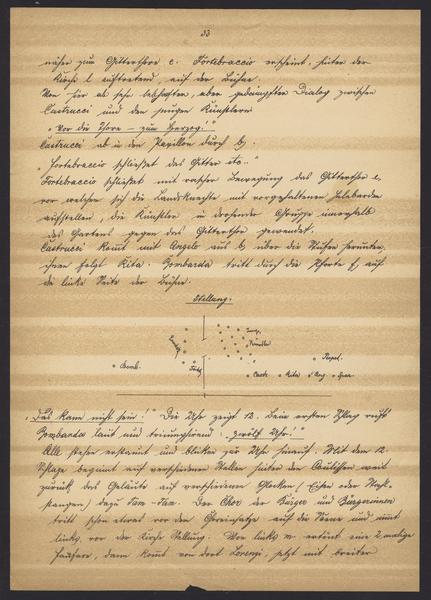 33
näher zum Gitterthore c. Fortebraccio erscheint, hinter der
Kirche l auftretend, auf der Bühne.
Von hier ab sehr lebhafter, aber gedämpfter Dialog zwischen
Castrucci und den jungen Künstlern
„Vor die Thore – zum Herzog!"
Castrucci ab in den Pavillon durch b.
„Fortebraccio schliesset das Gitter etc.."
Fortebraccio schliesst mit rascher Bewegung das Gitterthor c,
vor welchem sich die Landsknechte mit vorgehaltenen Helebarden
aufstellen, die Künstler in drohender Gruppe innerhalb
des Gartens gegen das Gitterthor gewendet.
Castrucci kommt mit Angelo aus b, über die Stufen herunter,
ihnen folgt Rita. Bombarda tritt durch die Pforte f, auf
die linke Seite der Bühne.
Stellung.
Künstler
Bomb. Fort. Castr. Rita Ang.
„Das kann nicht sein!" Die Uhr zeigt 12. Beim ersten Schlag ruft
Bombarda laut und triumphirend: „zwölf Uhr!"
Alle stehen erstaunt und blicken zur Uhr hinauf. Mit dem 12.
Schlage beginnt auf verschiedenen Stellen hinter den Coulissen weit
zurück, das Geläute auf verschiedenen Glocken (Eisen oder
stangen) dazu Tam-Tam. Der Chor der Bürger und Bürgerinnen
tritt schon etwas vor dem Choreinsatze auf die Scene und nimmt
links, vor der Kirche Stellung. Von links ertönt eine 2 malige
Fanfare, dann kommt von dort Lorenzi, jetzt mit breiter